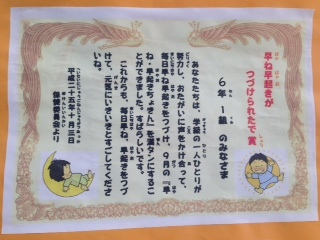 早ね早起きが
つづけられたで賞
6年1組のみなさま
あなたたちは、学級の一人ひとりが
努力し、おたがいに声をかけ合って、
毎日早ね早起きをつづけ、9月の『早
ね・早起きちょきん』を満タンにするこ
とができました。すばらしいです。
これからも、毎日早ね、早起きをつづ
けて、元気にいきいきとすごしてくださ
いね。
平成二十五年十月三日
保健委員会より